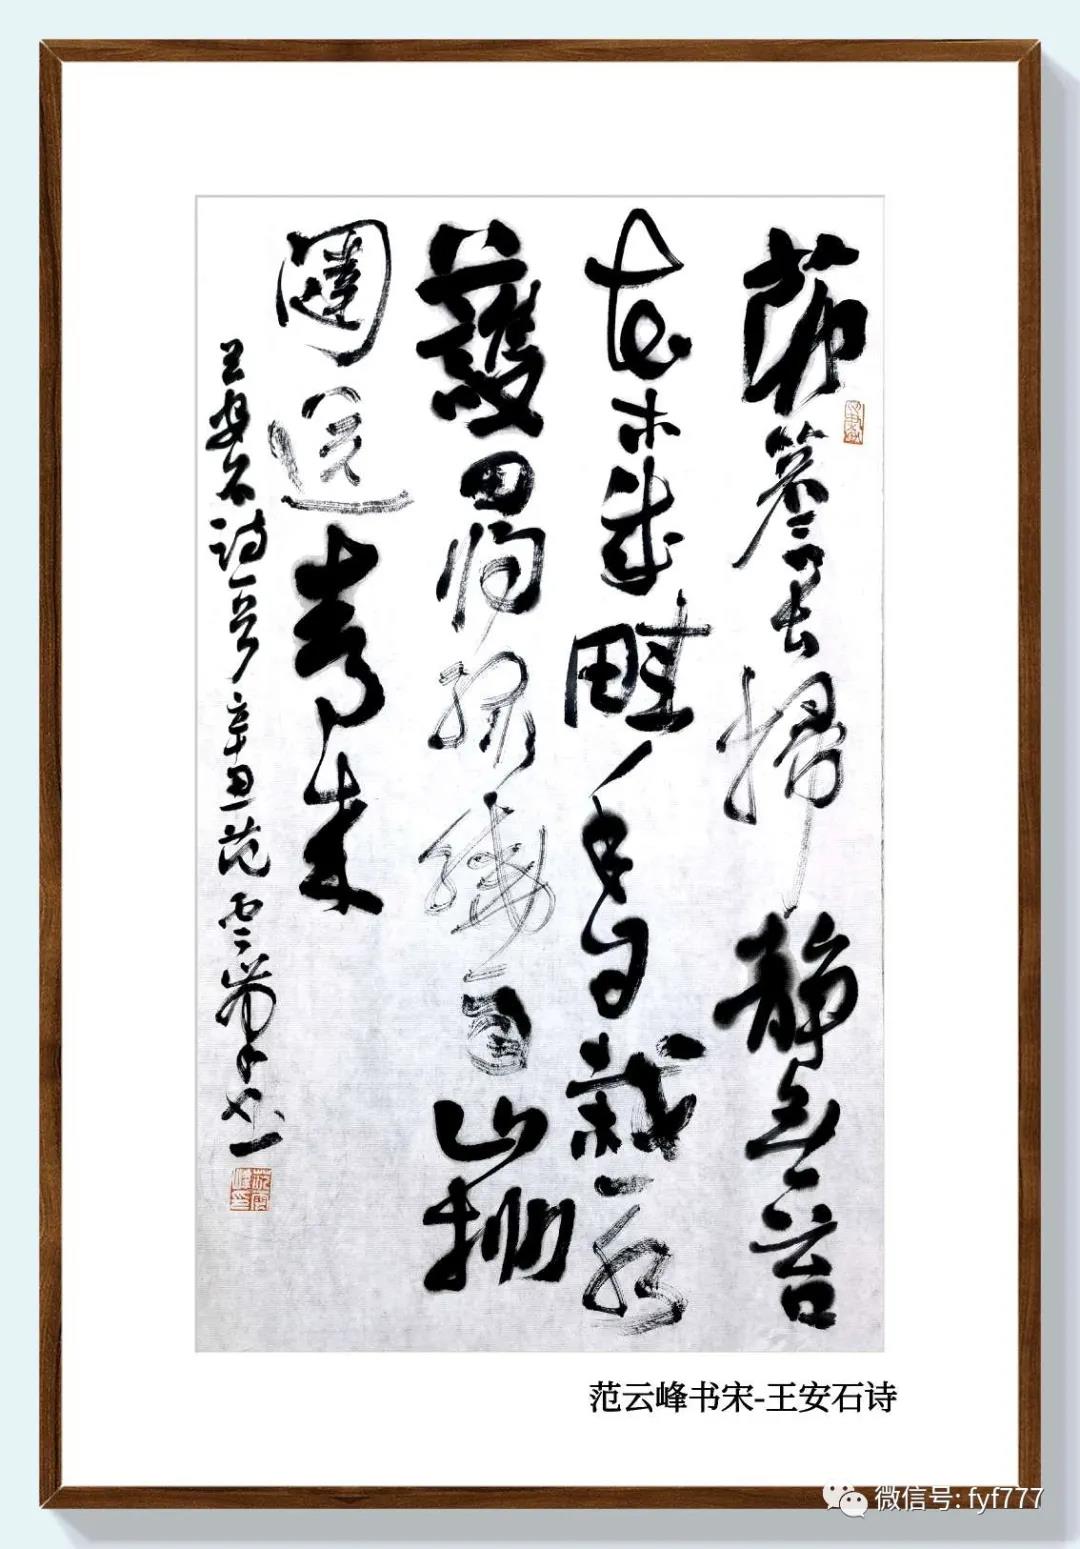 茆簷长掃靜無苔
花木成畦手自栽一水
護田将綠繞兩山排
闥送青来
王安石詩一首辛丑范雲峯书
范雲峰印
范云峰书宋-王安石诗
微信号: fyf777